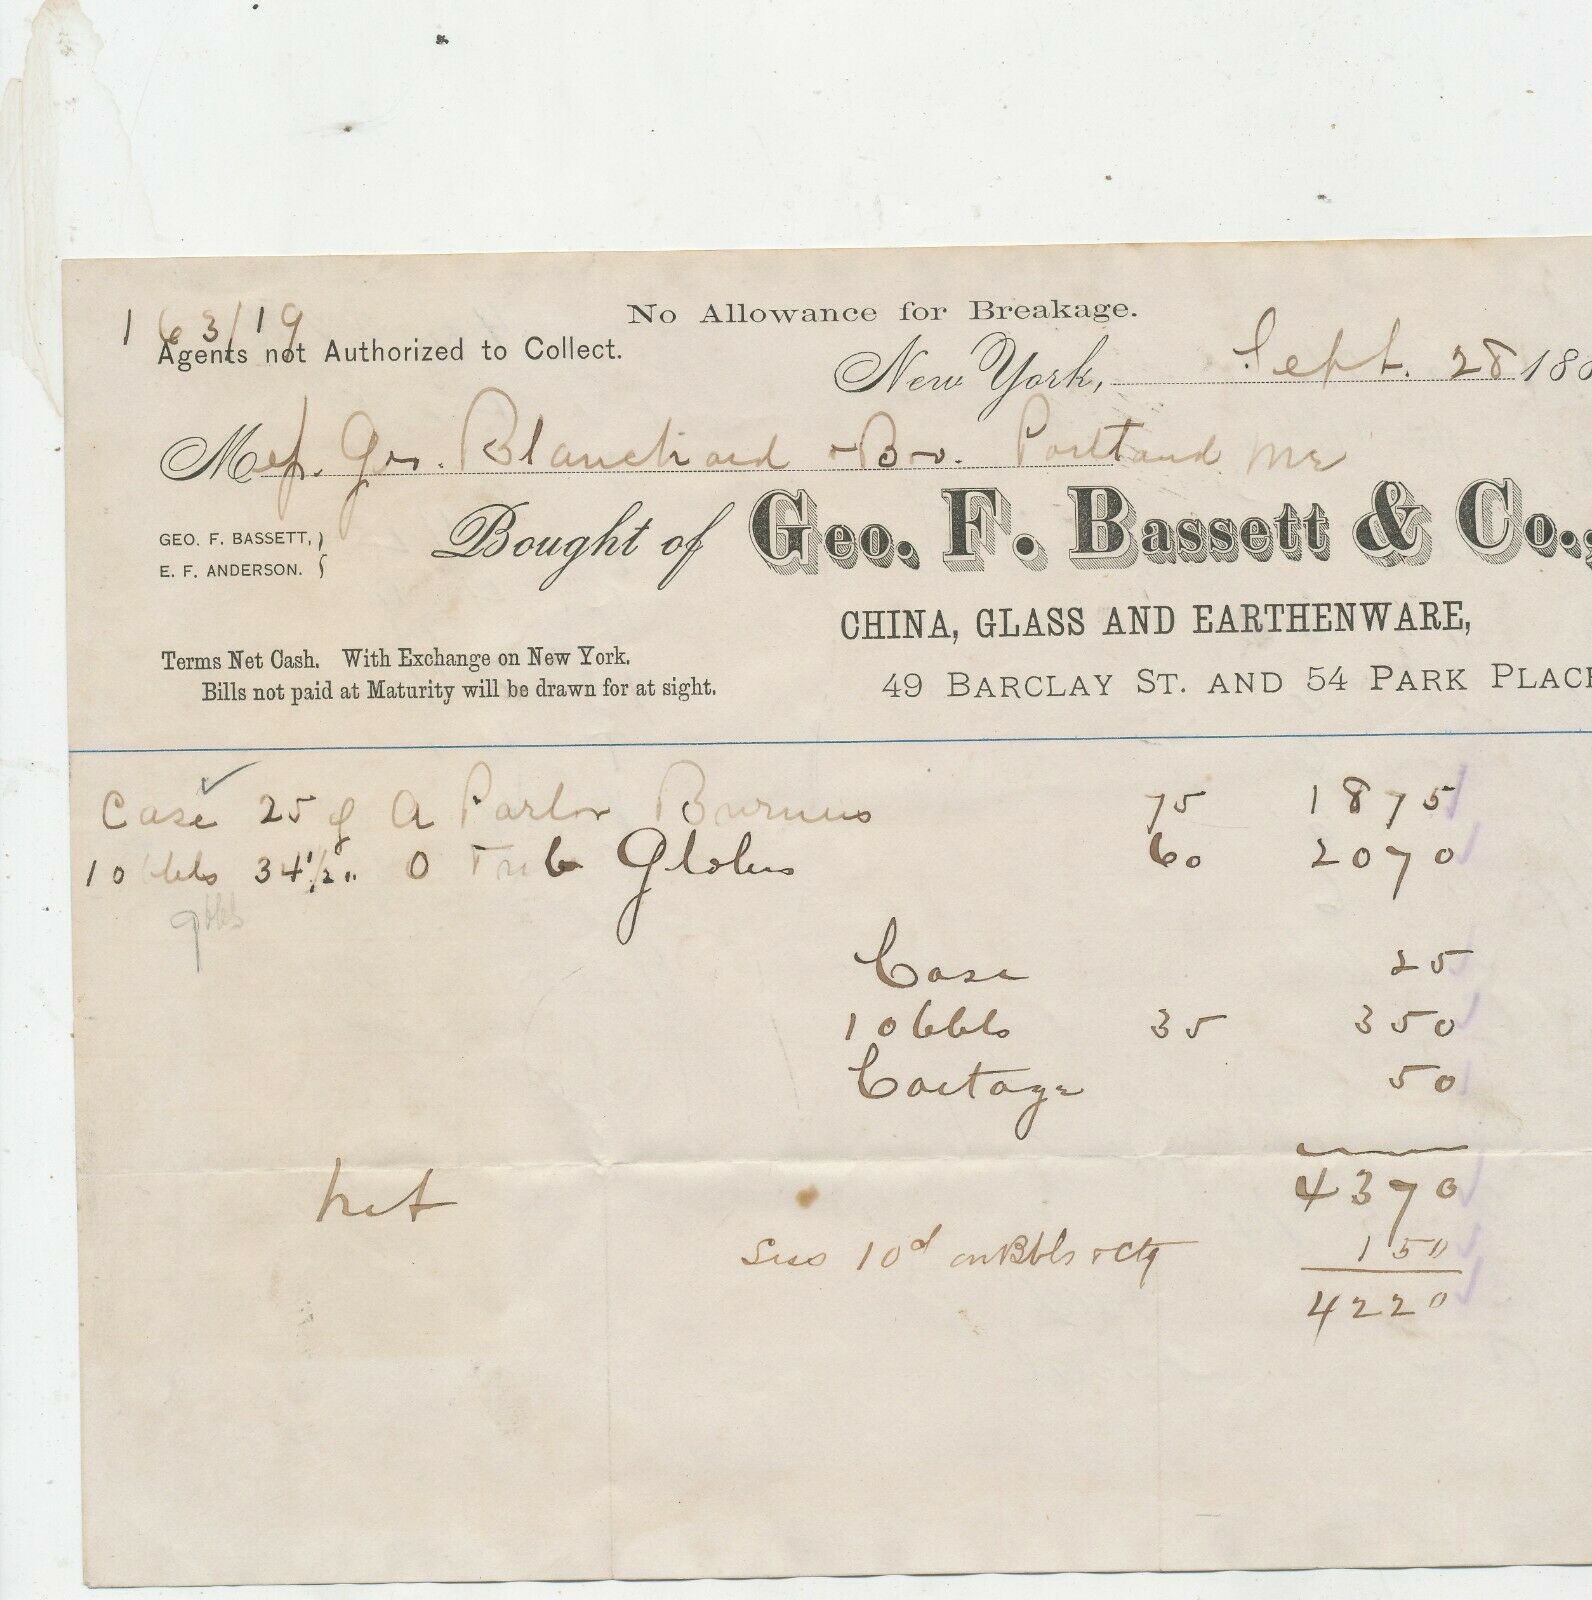 No Allowance for Breakage.
163/19
Agents not Authorized to Collect.
New York, Sept. 28 188
Mess. Geo. Blanchard & Bro. Portland Me
GEO. F. BASSETT,
E. F. ANDERSON.
Bought of Geo. F. Bassett & Co.,
CHINA, GLASS AND EARTHENWARE,
Terms Net Cash. With Exchange on New York.
Bills not paid at Maturity will be drawn for at sight.
49 BARCLAY ST. AND 54 PARK PLACE
Case 25 g A Parlor Burners 75 1875
10 bbls 34 1/2 " O Globes 60 2070
9 bbls
Case 25
10 bbls 35 350
Cartage 50
4370
net
Less 10d on Bbls & Ctg 150
4220